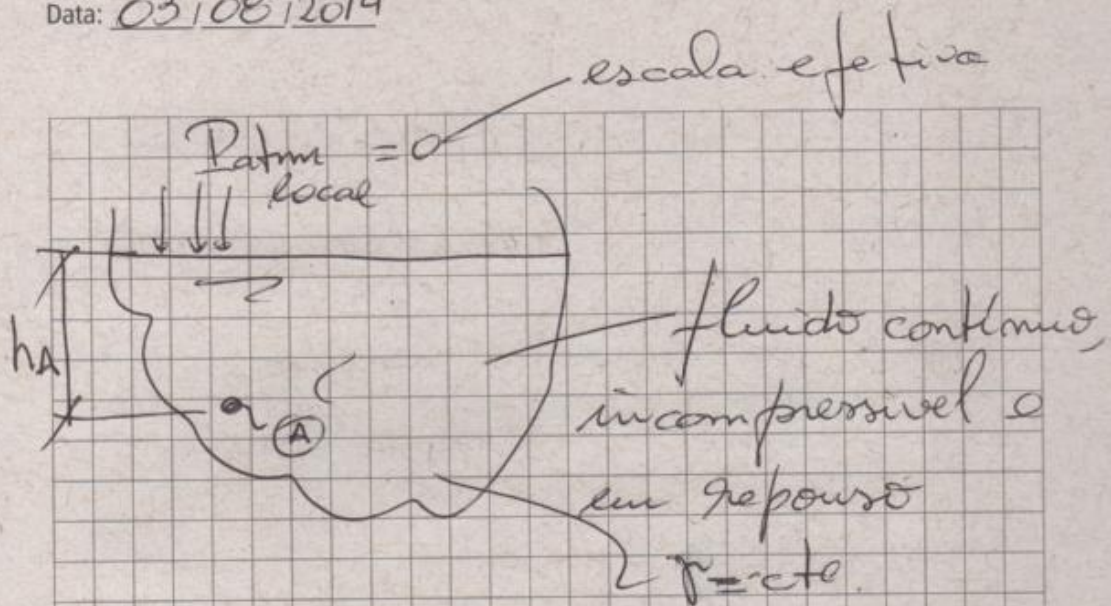 Data: 05/08/2014
escala efetiva
Patm = 0
local
hA
A
fluido contínuo,
incompressível e
em repouso
γ = cte.